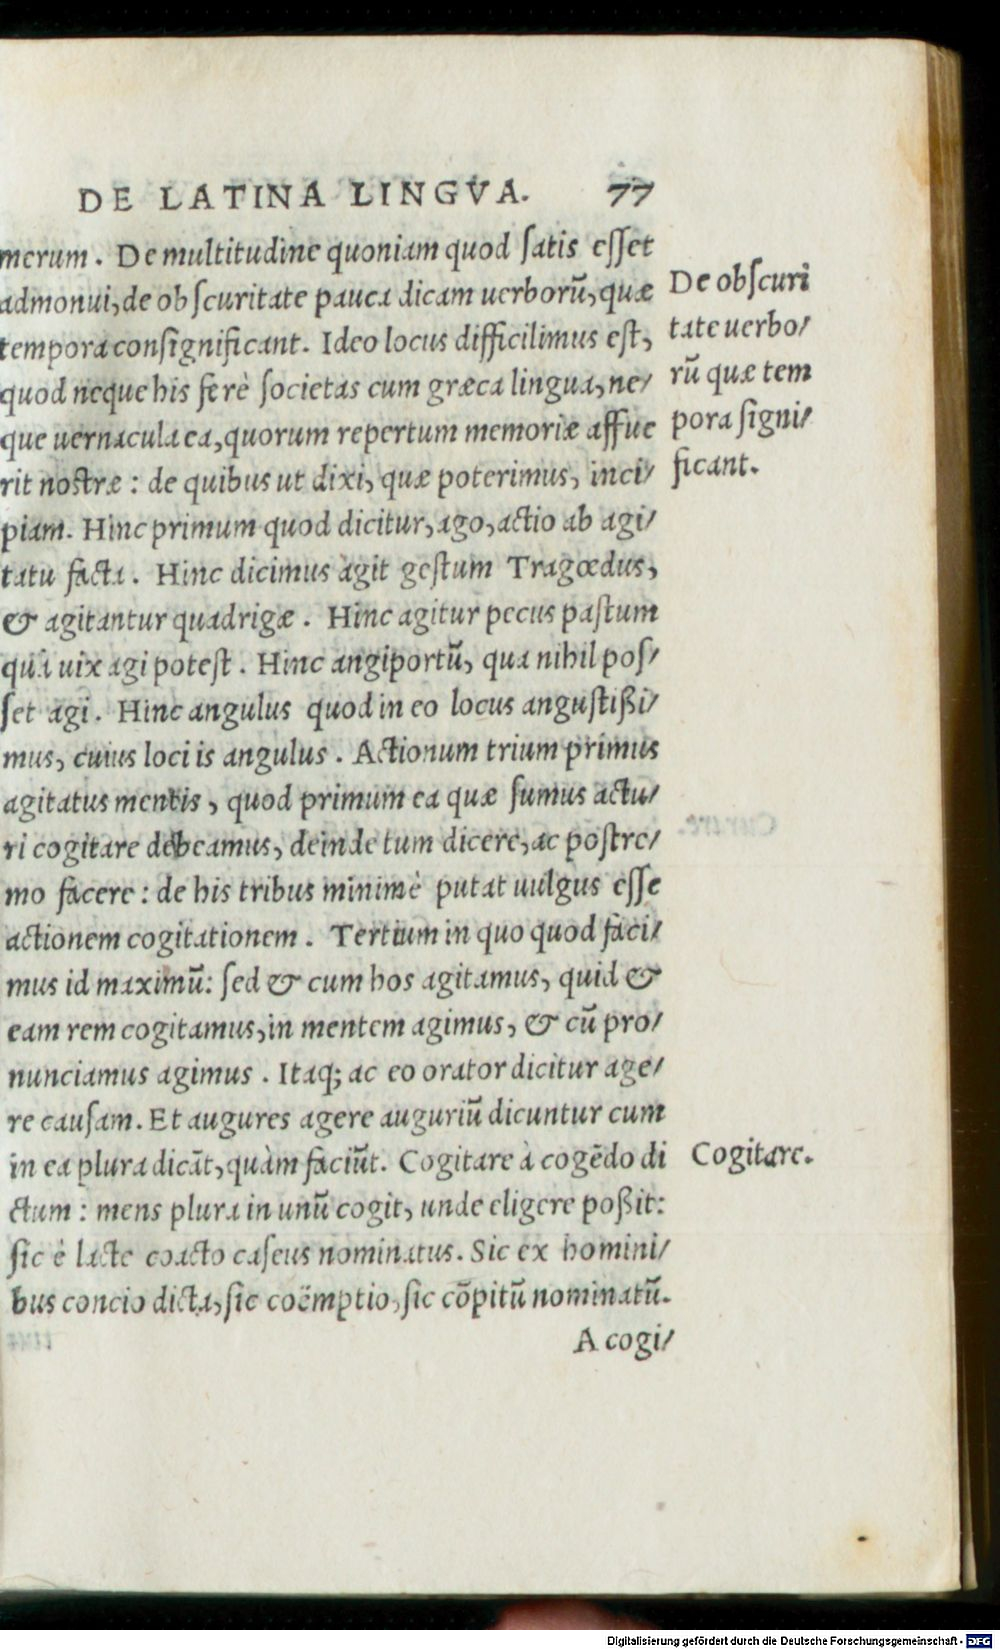 DE LATINA LINGVA. 77
merum. De multitudine quoniam quod ſatis eſſet
admonui, de obſcuritate pauca dicam uerborũ, quæ
tempora conſignificant. Ideo locus difficilimus eſt,
quod neque his ferè ſocietas cum græca lingua, ne/
que uernacula ea, quorum repertum memoriæ affue
rit nostræ: de quibus ut dixi, quæ poterimus, inci/
piam. Hinc primum quod dicitur, ago, actio ab agi/
tatu facta. Hinc dicimus agit geſtum Tragœdus,
& agitantur quadrigæ. Hinc agitur pecus paſtum
quà uix agi poteſt. Hinc angiportũ, qua nihil poſ/
ſet agi. Hinc angulus quod in eo locus anguſtißi/
mus, cuius loci is angulus. Actionum trium primus
agitatus mentis, quod primum ea quæ ſumus actu/
ri cogitare debeamus, deinde tum dicere, ac poſtre/
mo facere: de his tribus minimè putat uulgus eſſe
actionem cogitationem. Tertium in quo quod faci/
mus id maximũ: ſed & cum hos agitamus, quid &
eam rem cogitamus, in mentem agimus, & cũ pro/
nunciamus agimus. Itaq; ac eo orator dicitur age/
re cauſam. Et augures agere auguriũ dicuntur cum
in ea plura dicãt, quàm faciũt. Cogitare à cogẽdo di
ctum: mens plura in unũ cogit, unde eligere poßit:
ſic è lacte coacto caſeus nominatus. Sic ex homini/
bus concio dicta, ſic coëmptio, ſic cõpitũ nominatũ.
A cogi/
De obſcuri
tate uerbo/
rũ quæ tem
pora ſigni/
ficant.
Cogitare.
Digitalisierung gefördert durch die Deutsche Forschungsgemeinschaft - DFG